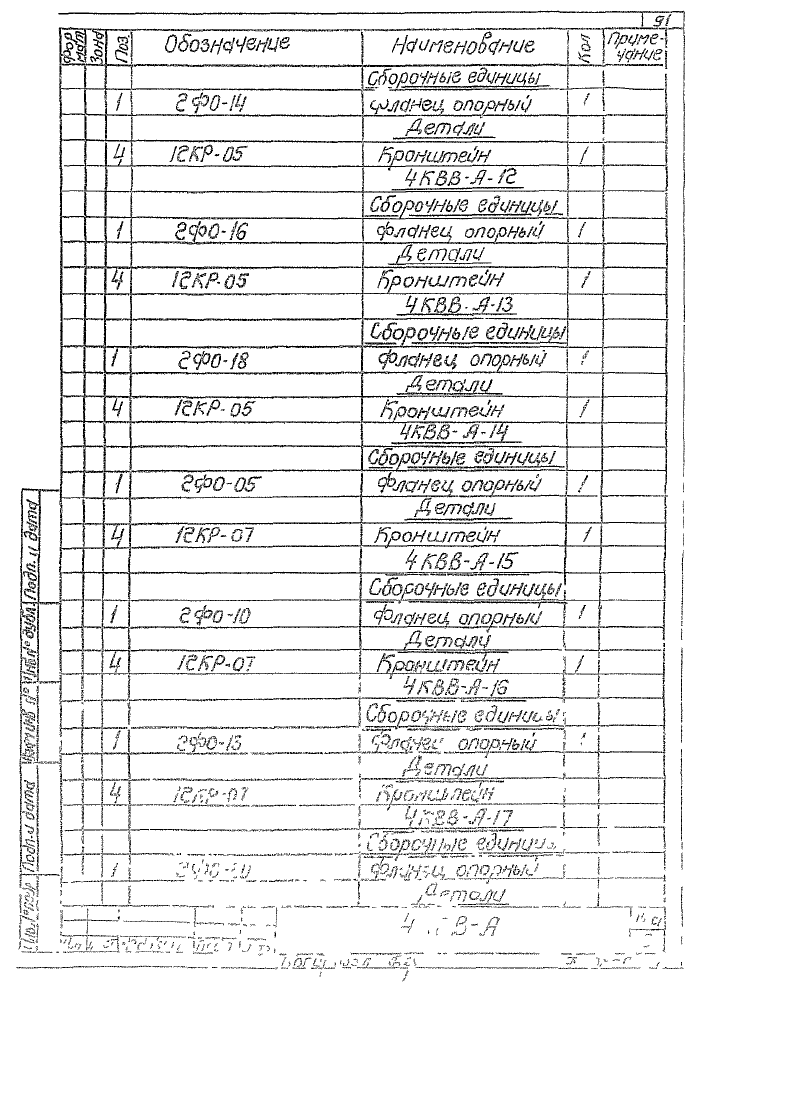 91
Формат Зона Поз. Обозначение Наименование Кол Примечание
Сборочные единицы
1 2ФО-14 Фланец опорный 1
Детали
4 12КР-05 Кронштейн 1
4КВВ-А-12
Сборочные единицы
1 2ФО-16 Фланец опорный 1
Детали
4 12КР-05 Кронштейн 1
4КВВ-А-13
Сборочные единицы
1 2ФО-18 Фланец опорный 1
Детали
4 12КР-05 Кронштейн 1
4КВВ-А-14
Сборочные единицы
1 2ФО-05 Фланец опорный 1
Детали
4 12КР-07 Кронштейн 1
4КВВ-А-15
Сборочные единицы
1 2ФО-10 Фланец опорный 1
Детали
4 12КР-07 Кронштейн 1
4КВВ-А-16
Сборочные единицы
1 2ФО-13 Фланец опорный 1
Детали
4 12КР-07 Кронштейн
4КВВ-А-17
Сборочные единицы
1 Фланец опорный
Детали
Подп. и дата
Инв.№ дубл.
Взам.инв.№
Подп. и дата